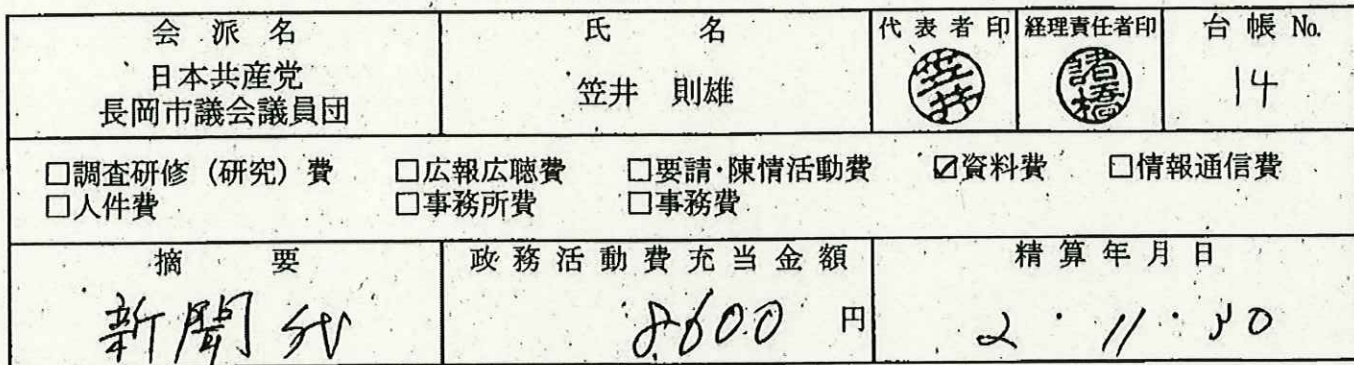 会派名 氏名 代表者印 経理責任者印 台帳No.
日本共産党
長岡市議会議員団 笠井 則雄 笠井 諸橋 14
□調査研修（研究）費 □広報広聴費 □要請・陳情活動費 ☑資料費 □情報通信費
□人件費 □事務所費 □事務費
摘要 政務活動費充当金額 精算年月日
新聞代 8,600 円 2・11・30